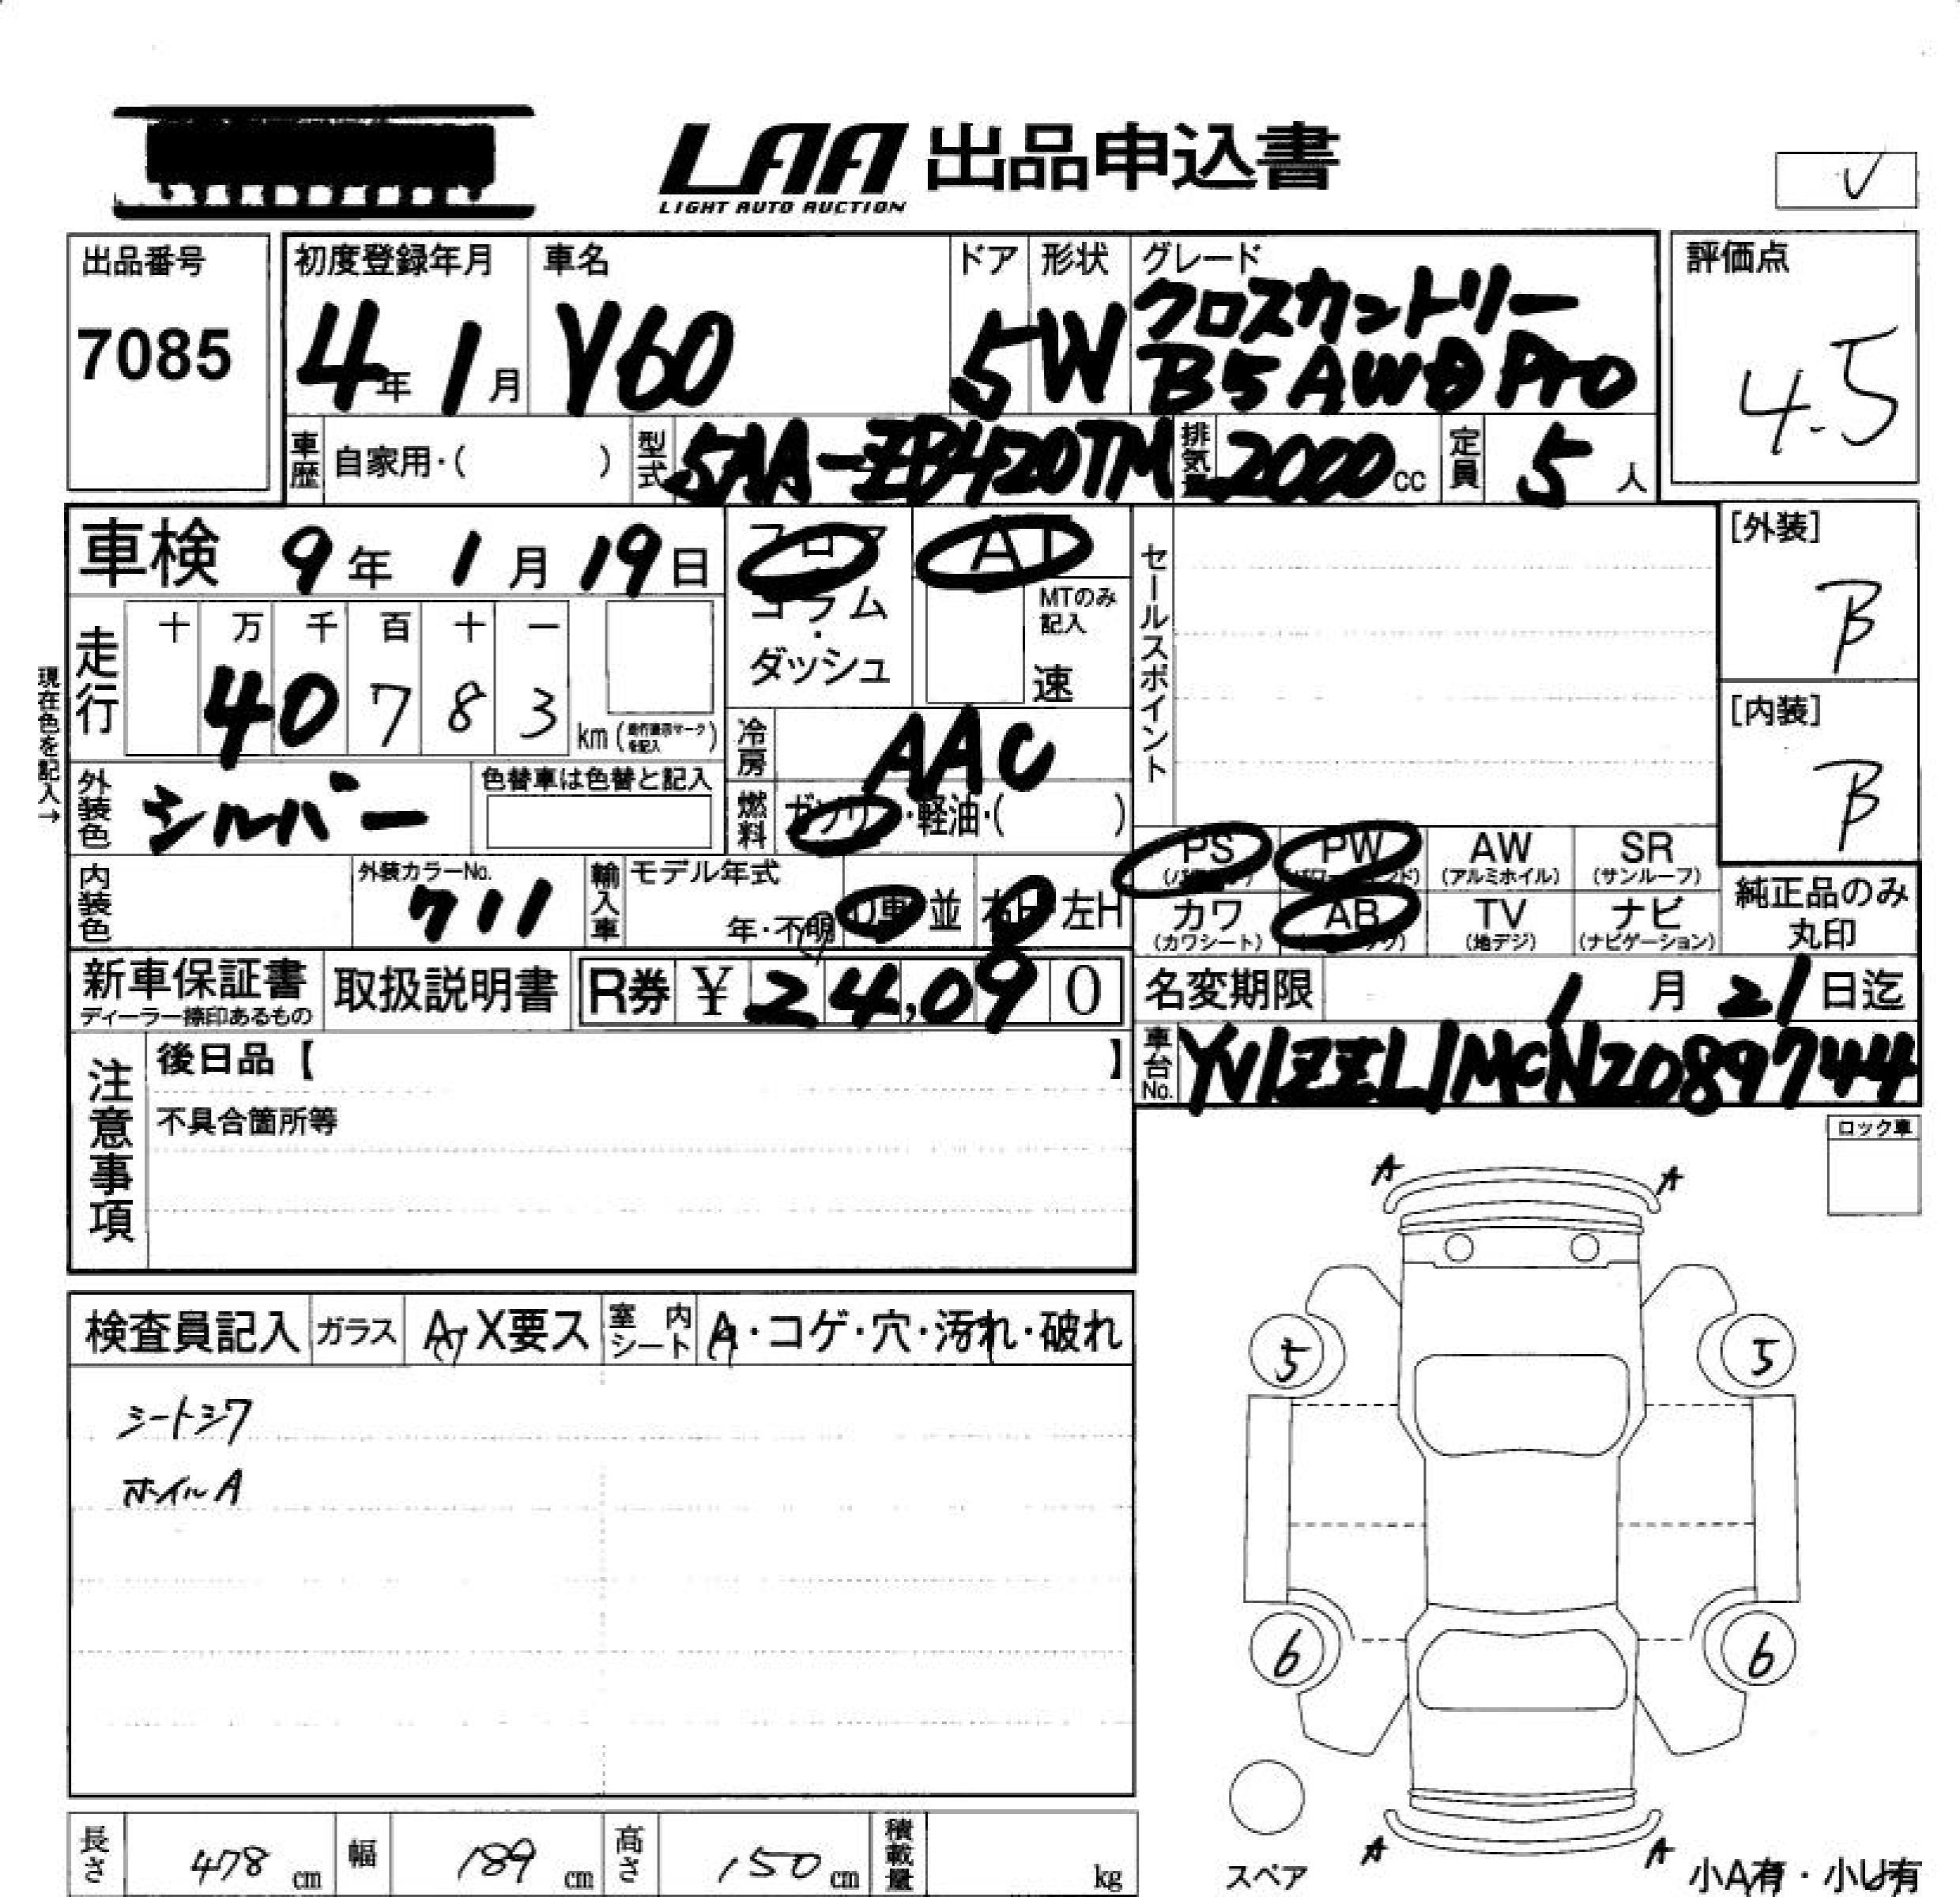 LAA 出品申込書
LIGHT AUTO AUCTION
出品番号
7085
初度登録年月
4年 1月
車名
V60
ドア
5
形状
W
グレード
クロスカントリー
B5 AWD Pro
評価点
4.5
車歴 自家用・( )
型式 5AA-ZB420TM
排気 2000 cc
定員 5 人
車検 9年 1月 19日
フロア
コラム
・
ダッシュ
AT
MTのみ
記入
速
セールスポイント
[外装]
B
[内装]
B
現在色を記入→
走行
十 万 千 百 十 一
4 0 7 8 3
km( を記入)
冷房 AAC
外装色 シルバー
色替車は色替と記入
燃料 ガソリン・軽油・( )
内装色
外装カラーNo.
711
輸入車 モデル年式
年・不明
D車 並 右H 左H
PS
PW
(パワーウィンド)
AW
(アルミホイル)
SR
(サンルーフ)
カワ
(カワシート)
AB
TV
(地デジ)
ナビ
(ナビゲーション)
純正品のみ
丸印
新車保証書
ディーラー捺印あるもの
取扱説明書
R券 ¥ 24,090
名変期限 1月 21日迄
車台No. YV1ZZL1MCN2089744
注意事項
後日品【 】
不具合箇所等
ロック車
検査員記入 ガラス A・X要ス 室内シート A・コゲ・穴・汚れ・破れ
シートシワ
ホイルA
A A
5 5
6 6
A A
スペア
小A有・小U有
長さ 478 cm 幅 189 cm 高さ 150 cm 積載量 kg